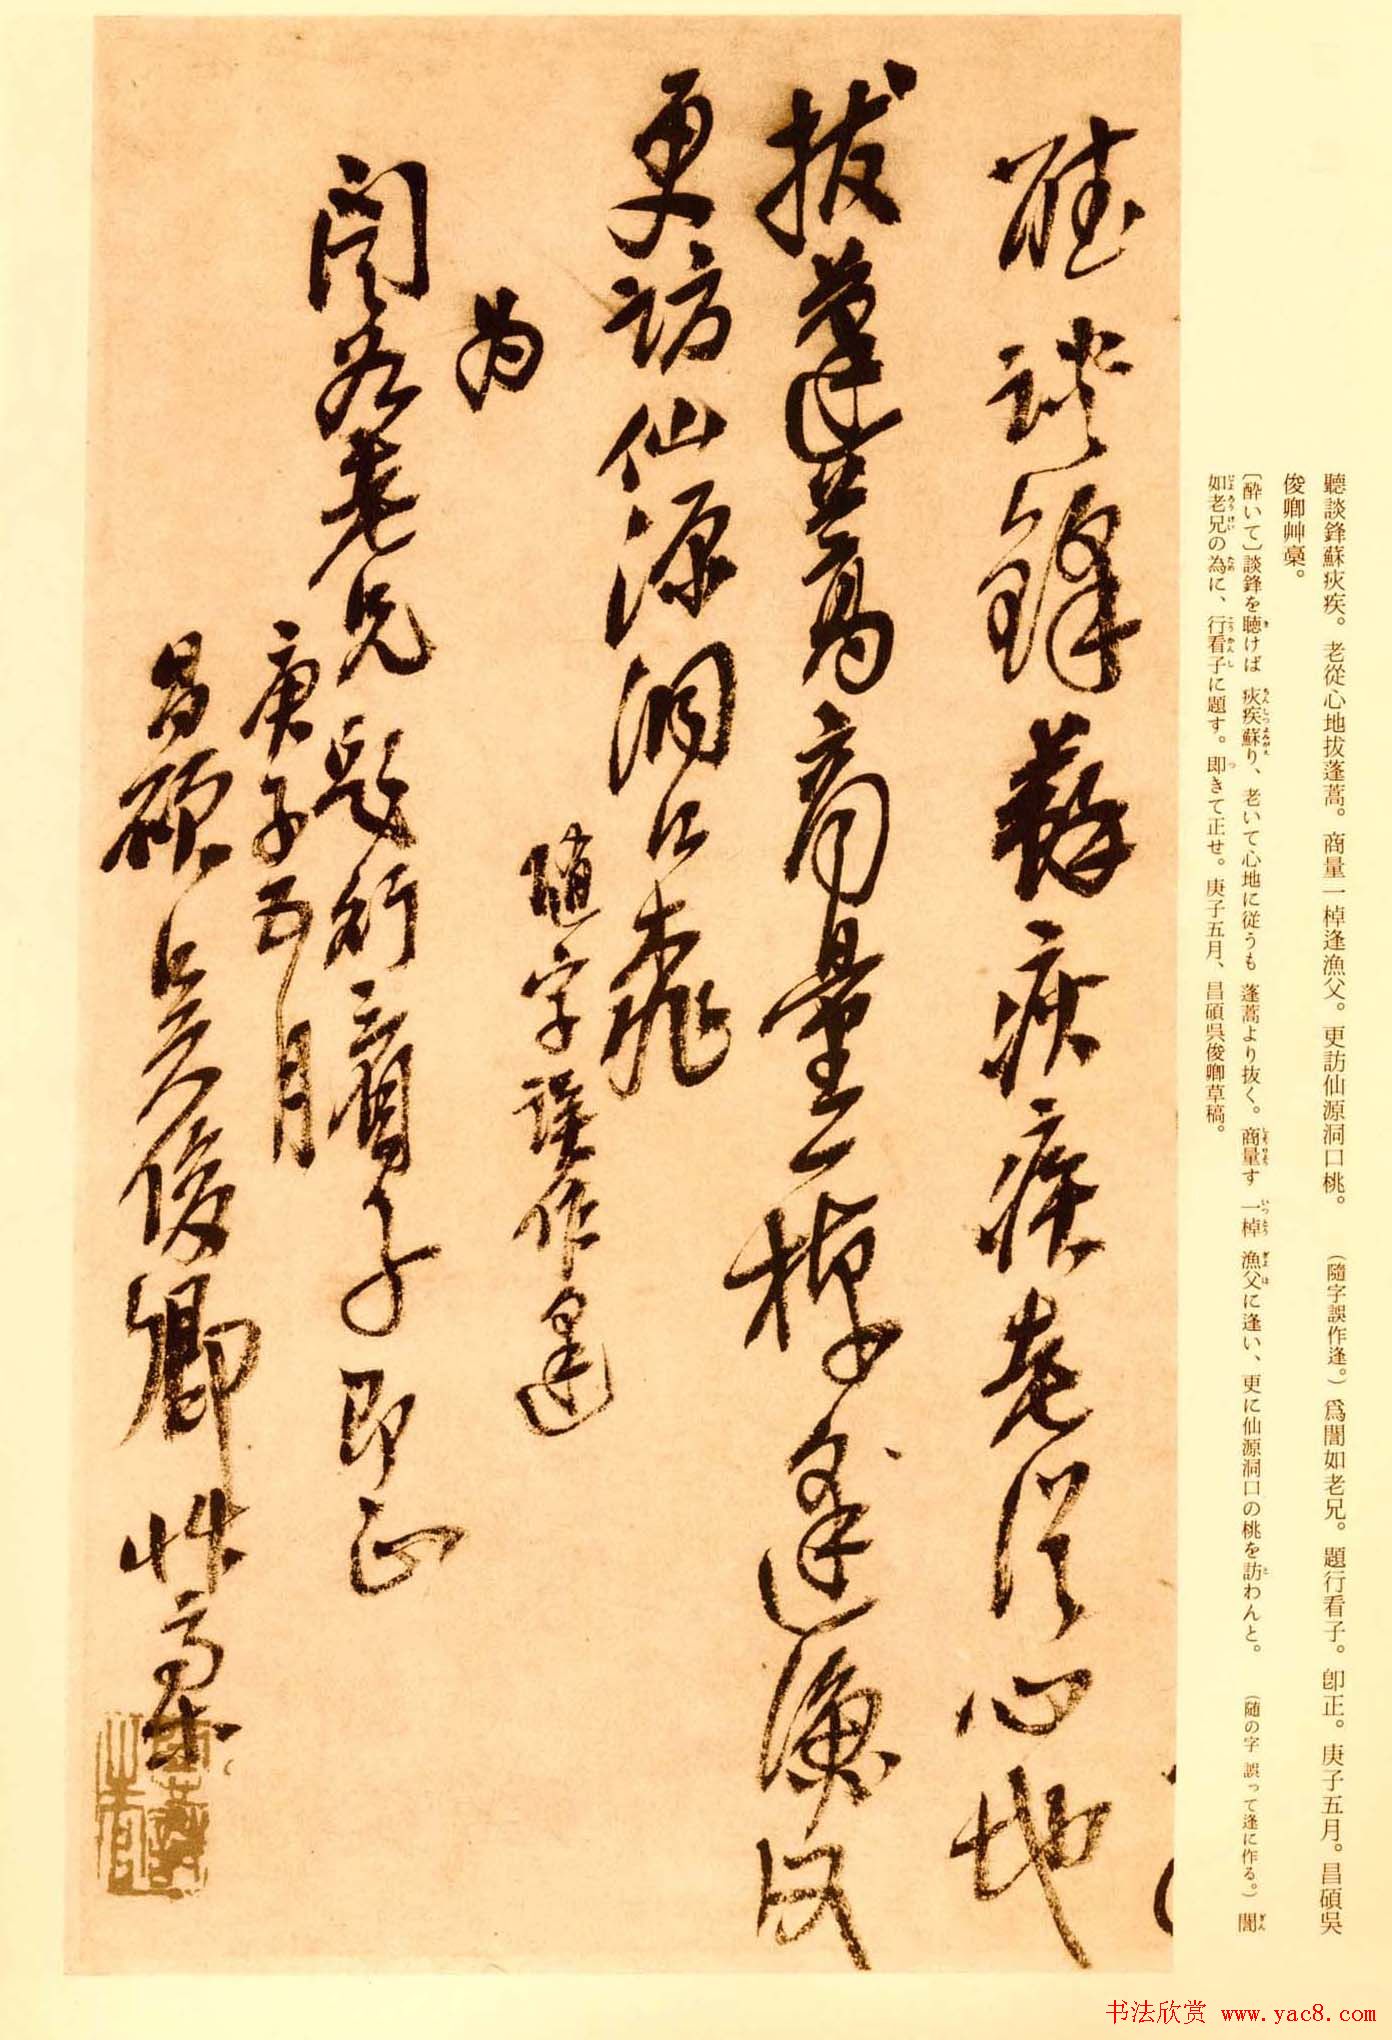 聽談鋒蘇疢疾。老從心地拔蓬蒿。商量一棹逢漁父。更訪仙源洞口桃。　（隨字誤作逢。）爲誾如老兄。題行看子。卽正。庚子五月。昌碩吳
俊卿艸稾。
〔酔いて〕談鋒を聴けば　疢疾蘇り、老いて心地に従うも　蓬蒿より抜く。商量す　一棹　漁父に逢い、更に仙源洞口の桃を訪わんと。　（随の字　誤って逢に作る。）誾
如老兄の為に、行看子に題す。即きて正せ。庚子五月、昌碩呉俊卿草稿。
聽談鋒蘇疢疾老從心地
拔蓬蒿商量一棹逢漁父
更訪仙源洞口桃
隨字誤作逢
为
誾如老兄題行看子即正
庚子五月
昌碩吳俊卿艸稾
书法欣赏 www.yac8.com